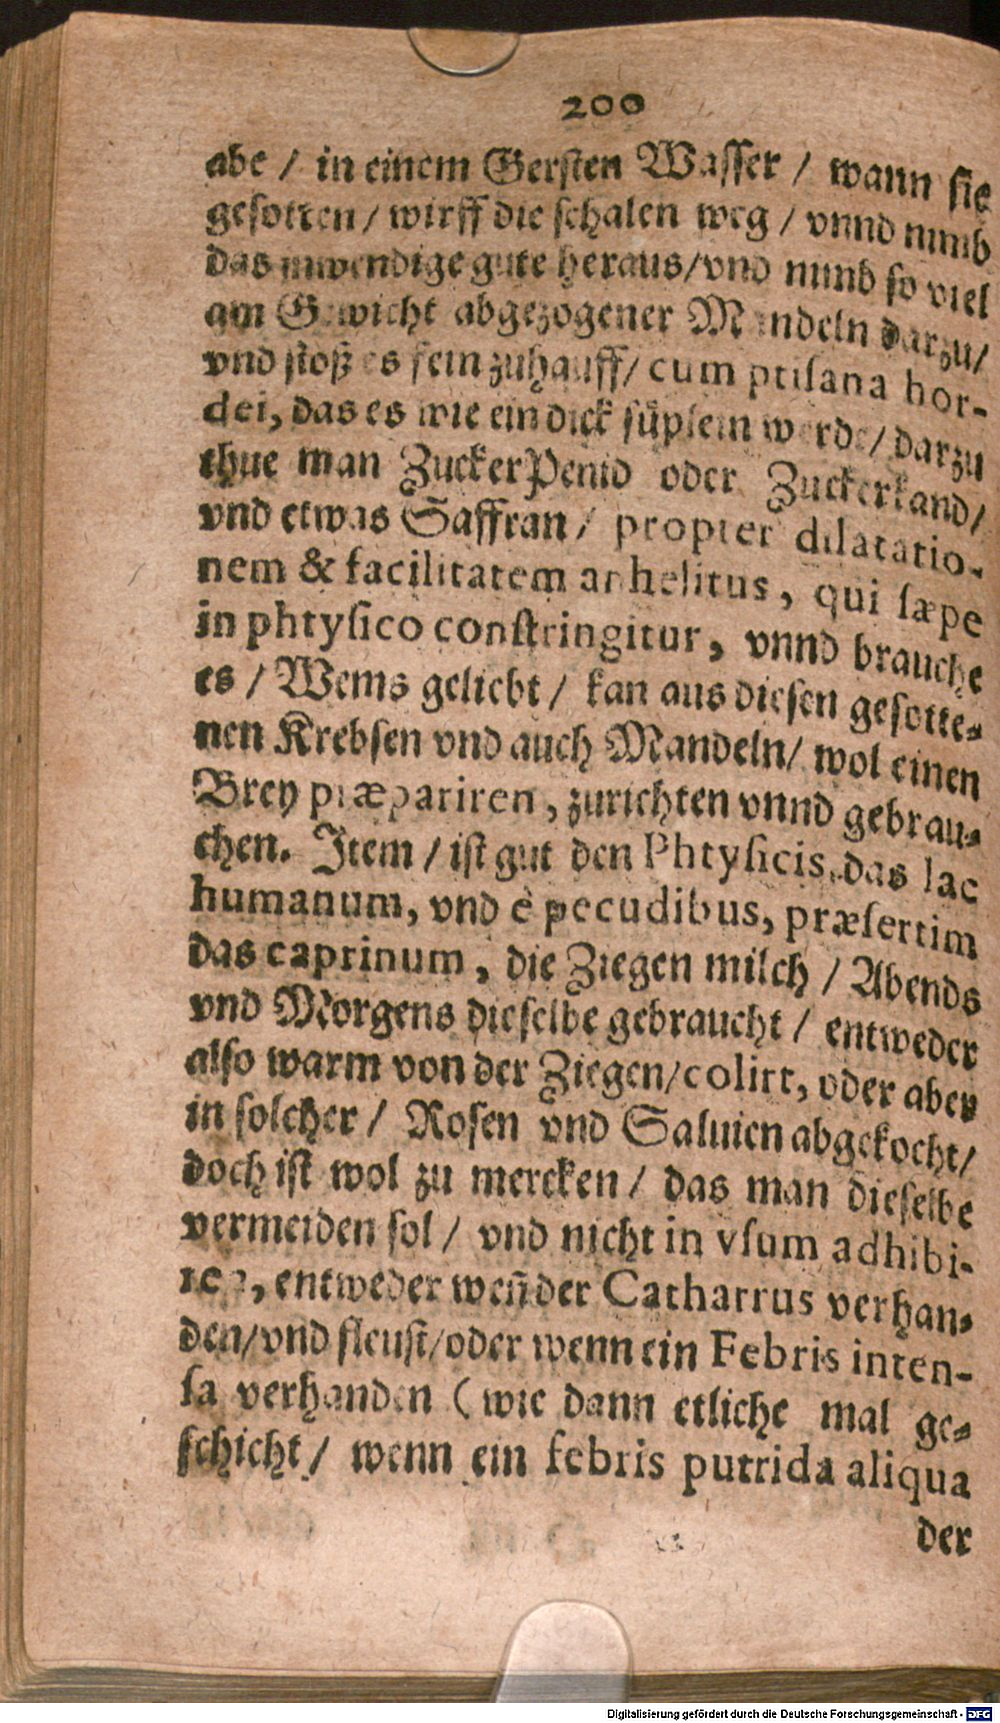 200
abe / in einem Gersten Wasser / wann sie
gesotten / wirff die schalen weg / vnnd nimb
das inwendige gute heraus/vnd nimb so viel
am Gewicht abgezogener Mandeln darzu/
vnd stoß es fein zuhauff/ cum ptisana hor-
dei, das es wie ein dick süplein werde/ darzu
thue man ZuckerPenid oder Zuckerkand/
vnd etwas Saffran / propter dilatatio-
nem & facilitatem anhelitus, qui sæpe
in phtysico constringitur, vnnd brauche
es / Wems geliebt / kan aus diesen gesotte-
nen Krebsen vnd auch Mandeln/ wol einen
Brey præpariren, zurichten vnnd gebrau-
chen. Item / ist gut den Phtysicis, das lac
humanum, vnd è pecudibus, præsertim
das caprinum, die Ziegen milch / Abends
vnd Morgens dieselbe gebraucht / entweder
also warm von der Ziegen/colirt, oder aber
in solcher / Rosen vnd Saluien abgekocht/
doch ist wol zu mercken / das man dieselbe
vermeiden sol / vnd nicht in vsum adhibi-
ren, entweder weñ der Catharrus verhan-
den/vnd fleust/oder wenn ein Febris inten-
sa verhanden (wie dann etliche mal ge-
schicht / wenn ein febris putrida aliqua
der
Digitalisierung gefördert durch die Deutsche Forschungsgemeinschaft - DFG